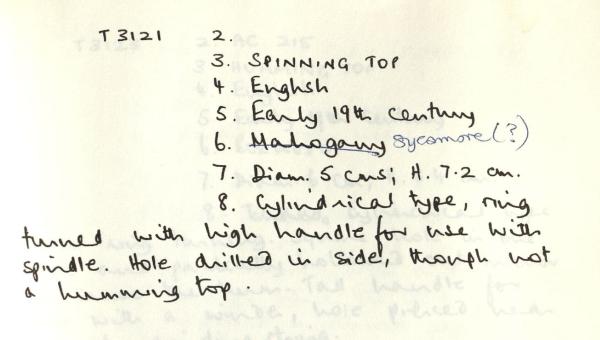 T 3121 2.
3. SPINNING TOP
4. English
5. Early 19th century
6. Mahogany sycomore (?)
7. Diam. 5 cms; H. 7.2 cm.
8. Cylindrical type, ring
turned with high handle for use with
spindle. Hole drilled in side, though not
a humming top.